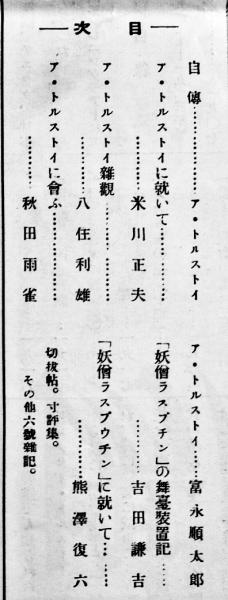 目次
自傳……………ア・トルストイ
ア・トルストイに就いて………
…………米川正夫
ア・トルストイ雜觀………
…………八住利雄
ア・トルストイに會ふ…………
…………秋田雨雀
ア・トルストイ……富永順太郎
「妖僧ラスプチン」の舞臺裝置記……
…………吉田謙吉
「妖僧ラスプウチン」に就いて……
…………熊澤復六
切拔帖。寸評集。
その他六號雜記。